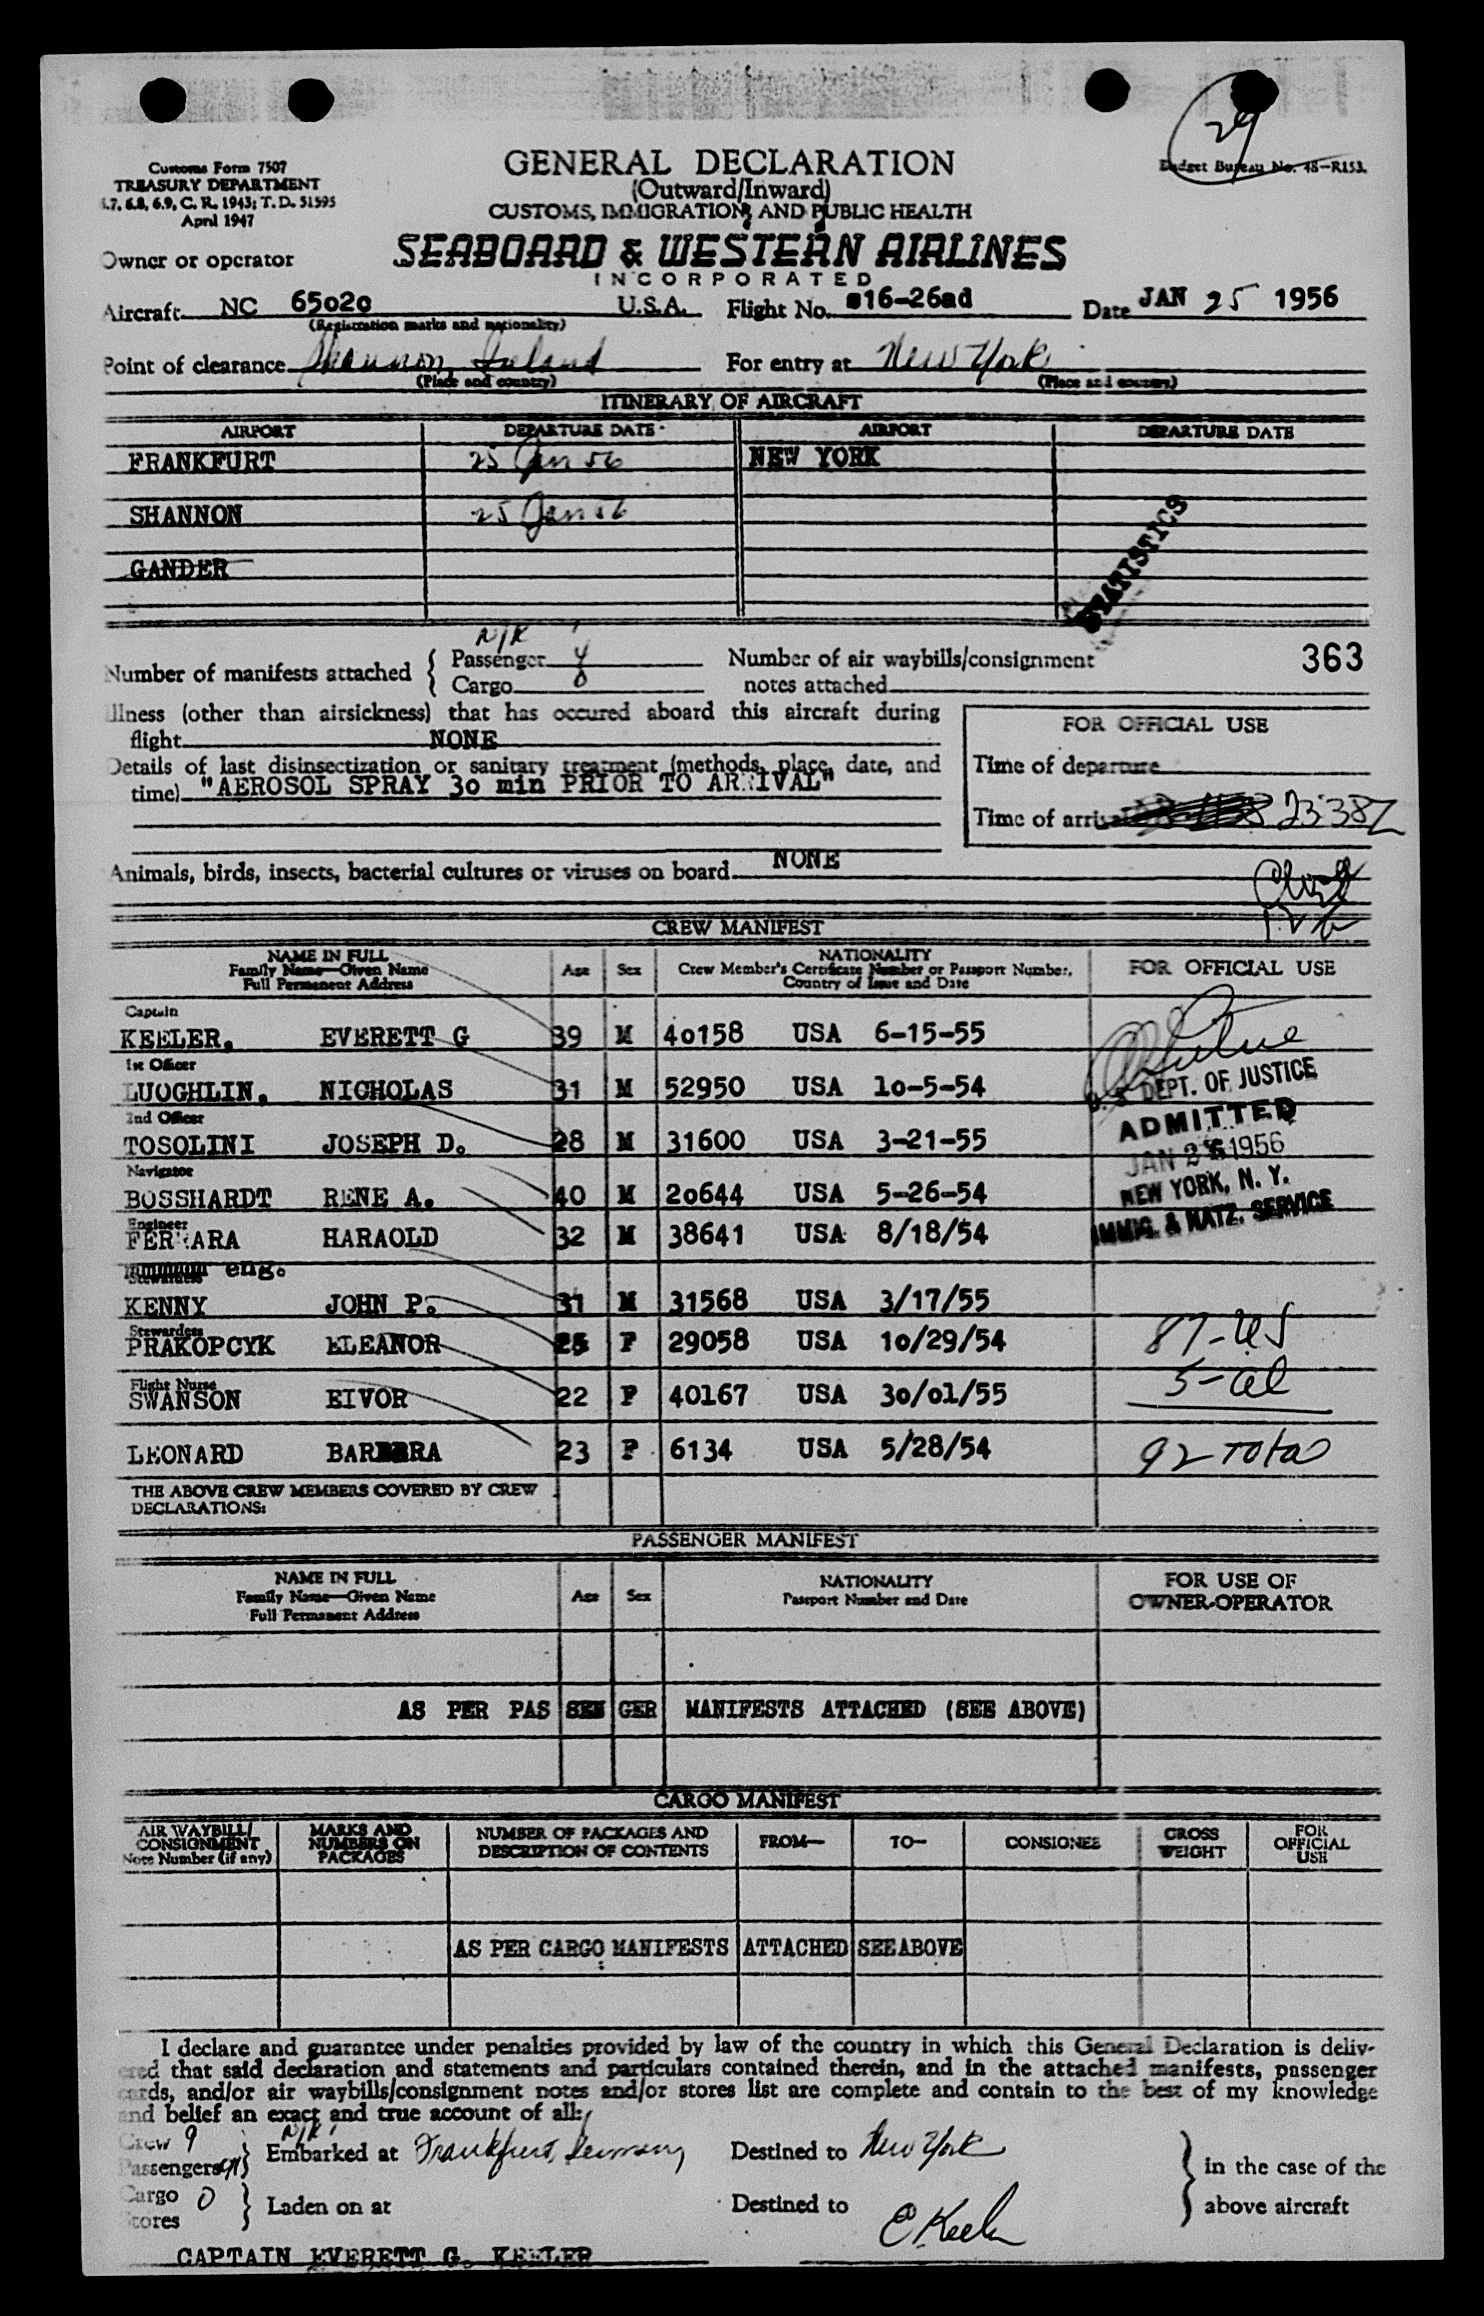 29
Customs Form 7507
TREASURY DEPARTMENT
4.7, 6.8, 6.9, C. R. 1943; T. D. 51595
April 1947
GENERAL DECLARATION
(Outward/Inward)
CUSTOMS, IMMIGRATION, AND PUBLIC HEALTH
Budget Bureau No. 48-R153.
SEABOARD & WESTERN AIRLINES
INCORPORATED
Owner or operator
Aircraft NC 65020 U.S.A. Flight No. s16-26ad Date JAN 25 1956
(Registration marks and nationality)
Point of clearance Shannon, Ireland For entry at New York
(Place and country) (Place and country)
ITINERARY OF AIRCRAFT
AIRPORT DEPARTURE DATE AIRPORT DEPARTURE DATE
FRANKFURT 25 Jan 56 NEW YORK
SHANNON 25 Jan 56
GANDER
STATISTICS
N/R
Number of manifests attached { Passenger 4
Cargo 0
Number of air waybills/consignment
notes attached
363
Illness (other than airsickness) that has occured aboard this aircraft during
flight NONE
Details of last disinsectization or sanitary treatment (methods, place, date, and
time) "AEROSOL SPRAY 30 min PRIOR TO ARRIVAL"
FOR OFFICIAL USE
Time of departure
Time of arrival 2338Z
Animals, birds, insects, bacterial cultures or viruses on board NONE
CREW MANIFEST
NAME IN FULL
Family Name—Given Name
Full Permanent Address
Age Sex
NATIONALITY
Crew Member's Certificate Number or Passport Number,
Country of Issue and Date
FOR OFFICIAL USE
Captain
KEELER, EVERETT G 39 M 40158 USA 6-15-55
1st Officer
LUOGHLIN, NICHOLAS 31 M 52950 USA 10-5-54
2nd Officer
TOSOLINI JOSEPH D. 28 M 31600 USA 3-21-55
Navigator
BOSSHARDT RENE A. 40 M 20644 USA 5-26-54
Engineer
FERRARA HARAOLD 32 M 38641 USA 8/18/54
eng.
KENNY JOHN P. 31 M 31568 USA 3/17/55
Stewardess
PRAKOPCYK ELEANOR 25 F 29058 USA 10/29/54
Flight Nurse
SWANSON EIVOR 22 F 40167 USA 30/01/55
LEONARD BARBARA 23 F 6134 USA 5/28/54
U. S. DEPT. OF JUSTICE
ADMITTED
JAN 26 1956
NEW YORK, N. Y.
IMMIG. & NATZ. SERVICE
87-US
5-al
92 Total
THE ABOVE CREW MEMBERS COVERED BY CREW
DECLARATIONS:
PASSENGER MANIFEST
NAME IN FULL
Family Name—Given Name
Full Permanent Address
Age Sex
NATIONALITY
Passport Number and Date
FOR USE OF
OWNER-OPERATOR
AS PER PAS SEN GER MANIFESTS ATTACHED (SEE ABOVE)
CARGO MANIFEST
AIR WAYBILL/
CONSIGNMENT
Note Number (if any)
MARKS AND
NUMBERS ON
PACKAGES
NUMBER OF PACKAGES AND
DESCRIPTION OF CONTENTS
FROM— TO— CONSIGNEE
GROSS
WEIGHT
FOR
OFFICIAL
USE
AS PER CARGO MANIFESTS ATTACHED SEE ABOVE
I declare and guarantee under penalties provided by law of the country in which this General Declaration is deliv-
ered that said declaration and statements and particulars contained therein, and in the attached manifests, passenger
cards, and/or air waybills/consignment notes and/or stores list are complete and contain to the best of my knowledge
and belief an exact and true account of all:
Crew 9 N/R
Passengers } Embarked at Frankfurt, Germany Destined to New York } in the case of the
Cargo 0
Stores } Laden on at Destined to above aircraft
E Keeler
CAPTAIN EVERETT G. KEELER